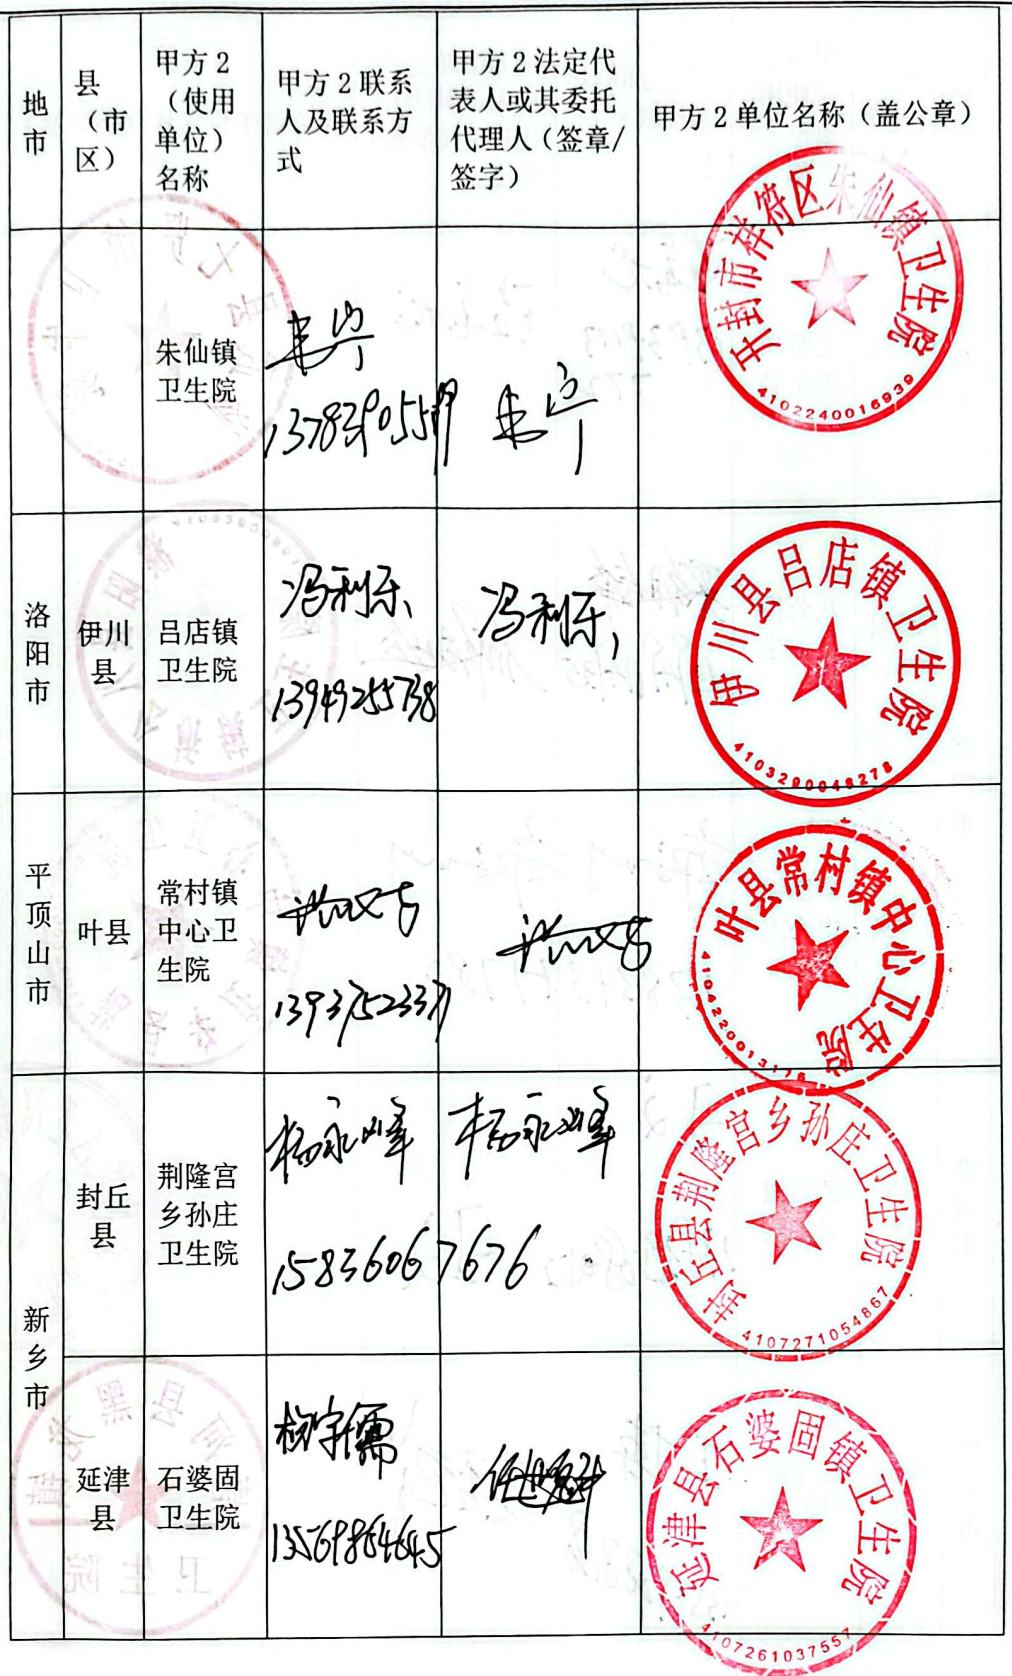 地
市
县
（市
区）
甲方2
（使用
单位）
名称
甲方2联系
人及联系方
式
甲方2法定代
表人或其委托
代理人（签章/
签字）
甲方2单位名称（盖公章）
朱仙镇
卫生院
朱宁
朱宁
开封市祥符区朱仙镇卫生院
4102240016939
洛
阳
市
伊川
县
吕店镇
卫生院
冯利乐
13949255738
冯利乐
伊川县吕店镇卫生院
4103290048278
平
顶
山
市
叶县
常村镇
中心卫
生院
13937523371
叶县常村镇中心卫生院
4104220013176
新
乡
市
封丘
县
荆隆宫
乡孙庄
卫生院
杨永峰
15836067676
杨永峰
封丘县荆隆宫乡孙庄卫生院
4107271054867
延津
县
石婆固
卫生院
13569864645
延津县石婆固镇卫生院
4107261037557